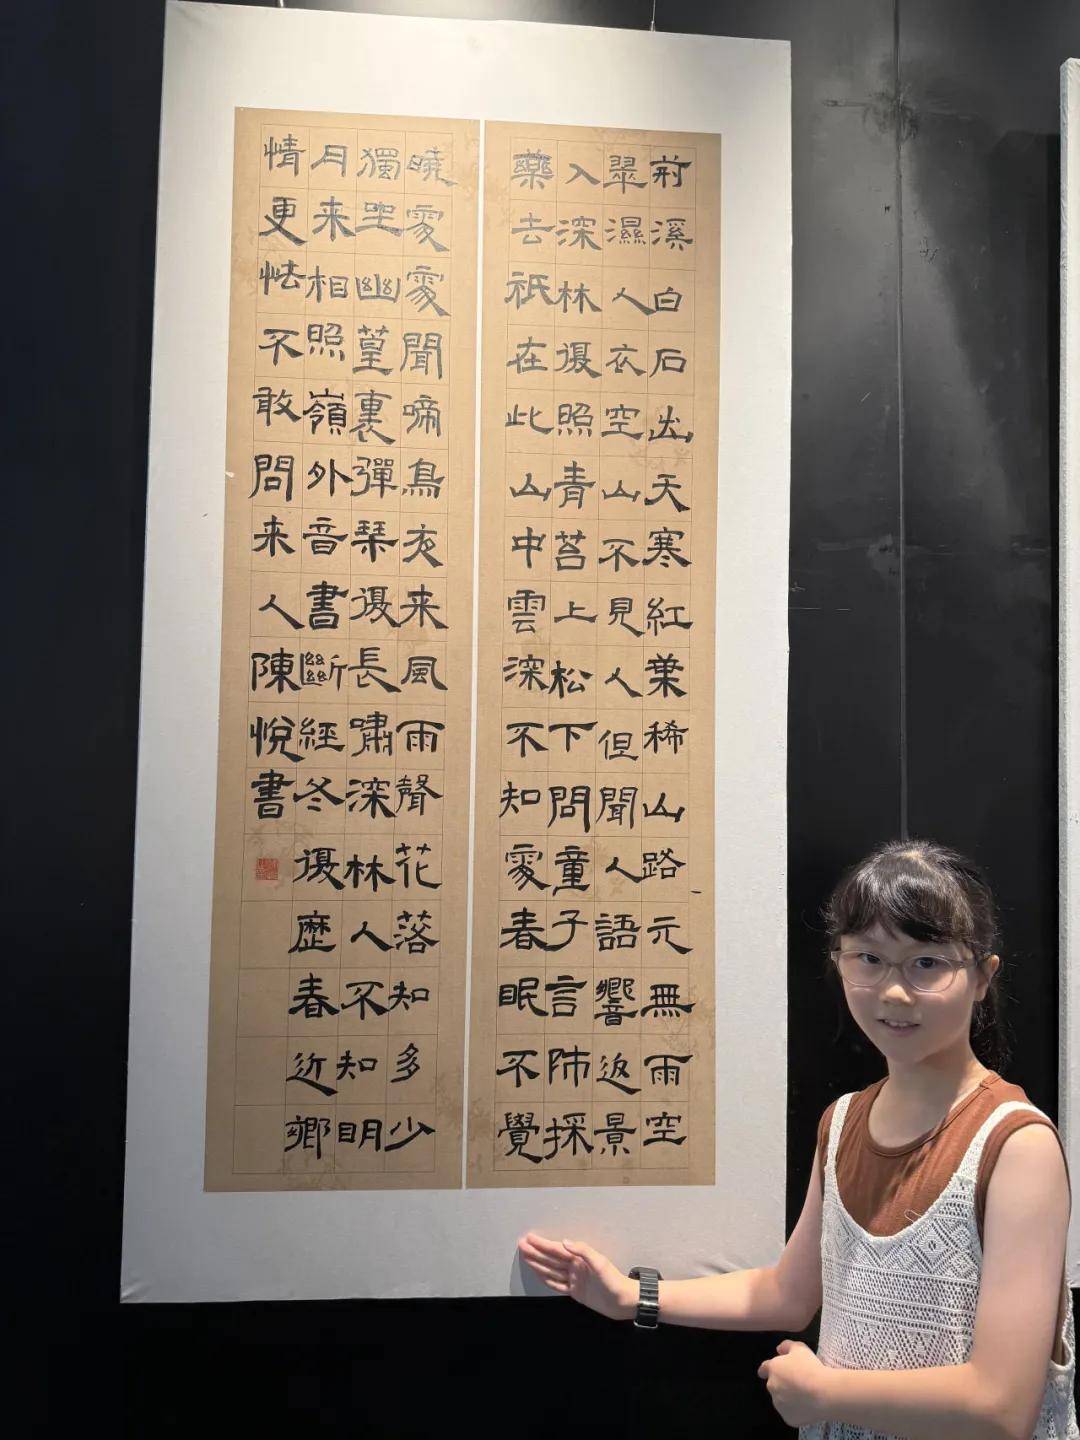 荊溪白石出天寒紅葉稀山路元無雨空
翠濕人衣空山不見人但聞人語響返景
入深林復照青苔上松下問童子言師採
藥去祇在此山中雲深不知處春眠不覺
曉處處聞啼鳥夜来風雨聲花落知多少
獨坐幽篁裏彈琴復長嘯深林人不知明
月来相照嶺外音書斷經冬復歷春近鄉
情更怯不敢問来人陳悅書